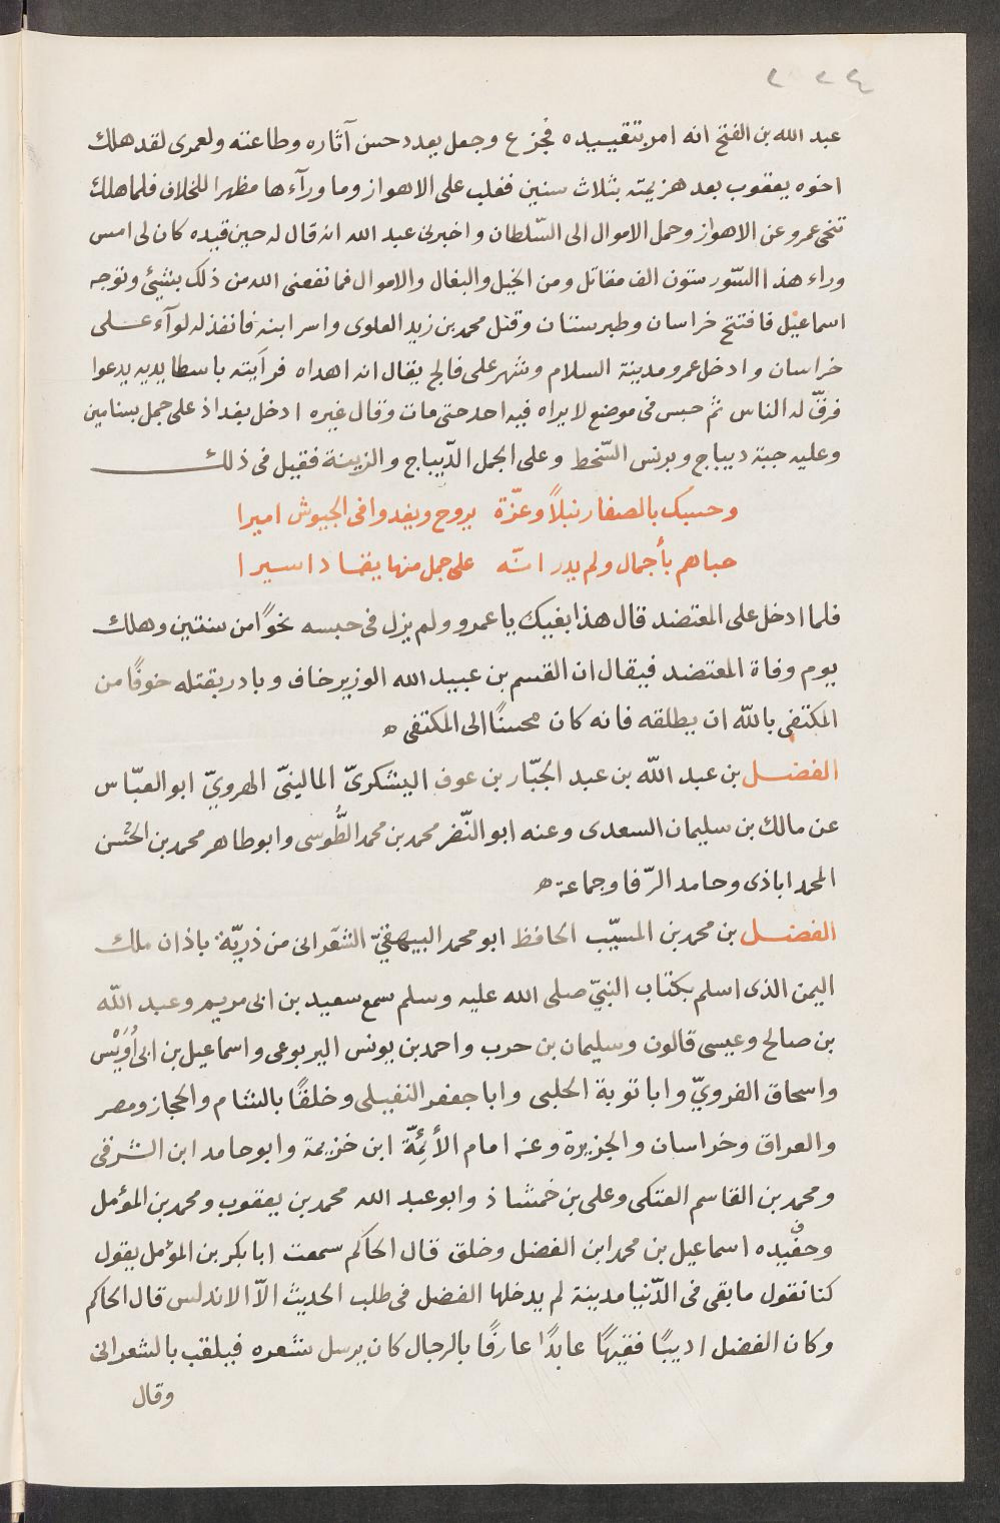 ٢٢٤
عبد الله بن الفتح انه امر بتقييده فجزع وجعل يعدد حسن آثاره وطاعته ولعمرى لقد هلك
اخوه يعقوب بعد هزيمته بثلاث سنين فغلب على الاهواز وما ورآءها مظهرا للخلاف فلما هلك
تنحى عمرو عن الاهواز وحمل الاموال الى السّلطان واخبرنى عبد الله انه قال له حين قيده كان لى امس
وراء هذا السّور ستون الف مقاتل ومن الخيل والبغال والاموال فما نفعنى الله من ذلك بشيئ وتوجه
اسماعيل فافتتح خراسان وطبرستان وقتل محمد بن زيد العلوى واسر ابنه فانفذ له لوآء على
خراسان وادخل عمرو مدينة السلام وشهر على فالج يقال انه اهداه فرآيته باسطا يديه يدعوا
فرقّ له الناس ثم حبس فى موضع لا يراه فيه احد حتى مات وقال غيره ادخل بغداذ على جمل بسنامين
وعليه جبة ديباج وبرنس السّخط وعلى الجمل الدّيباج والزينة فقيل فى ذلك
وحسبك بالصفار نبلاً وعزّة يروح ويغدوا فى الجيوش اميرا
حباهم بأجمال ولم يدر انّه على جمل منها يقاد اسيرا
فلما ادخل على المعتضد قال هذا بغيك يا عمرو ولم يزل فى حبسه نحوًا من سنتين وهلك
يوم وفاة المعتضد فيقال ان القسم بن عبيد الله الوزير خاف وبادر بقتله خوفًا من
المكتفى بالله ان يطلقه فانه كان محسنًا الى المكتفى ه
الفضل بن عبد الله بن عبد الجبّار بن عوف اليشكرىّ المالينىّ الهروىّ ابو العبّاس
عن مالك بن سليمان السعدى وعنه ابو النّضر محمد بن محمد الطُّوسى وابو طاهر محمد بن الحسن
المحمداباذى وحامد الرّفا وجماعة ه
الفضل بن محمد بن المسيّب الحافظ ابو محمد البيهقىّ الشعرانى من ذريّة باذان ملك
اليمن الذى اسلم بكتاب النبىّ صلى الله عليه وسلم سمع سعيد بن ابى مريم وعبد الله
بن صالح وعيسى قالون وسليمان بن حرب واحمد بن يونس اليربوعى واسماعيل بن ابى أُوَيْس
واسحاق الفروىّ وابا توبة الحلبى وابا جعفر النفيلى وخلقًا بالشام والحجاز ومصر
والعراق وخراسان والجزيرة وعنه امام الأئِمّة ابن خزيمة وابو حامد ابن الشرقى
ومحمد بن القاسم العتكى وعلى بن خمشاذ وابو عبد الله محمد بن يعقوب ومحمد بن المؤمل
وحفيده اسماعيل بن محمد ابن الفضل وخلق قال الحاكم سمعت ابا بكر بن المؤمل يقول
كنا نقول ما بقى فى الدّنيا مدينة لم يدخلها الفضل فى طلب الحديث الّا الاندلس قال الحاكم
وكان الفضل اديبًا فقيهًا عابدًا عارفًا بالرجال كان يرسل شعره فيلقب بالشعرانى
وقال